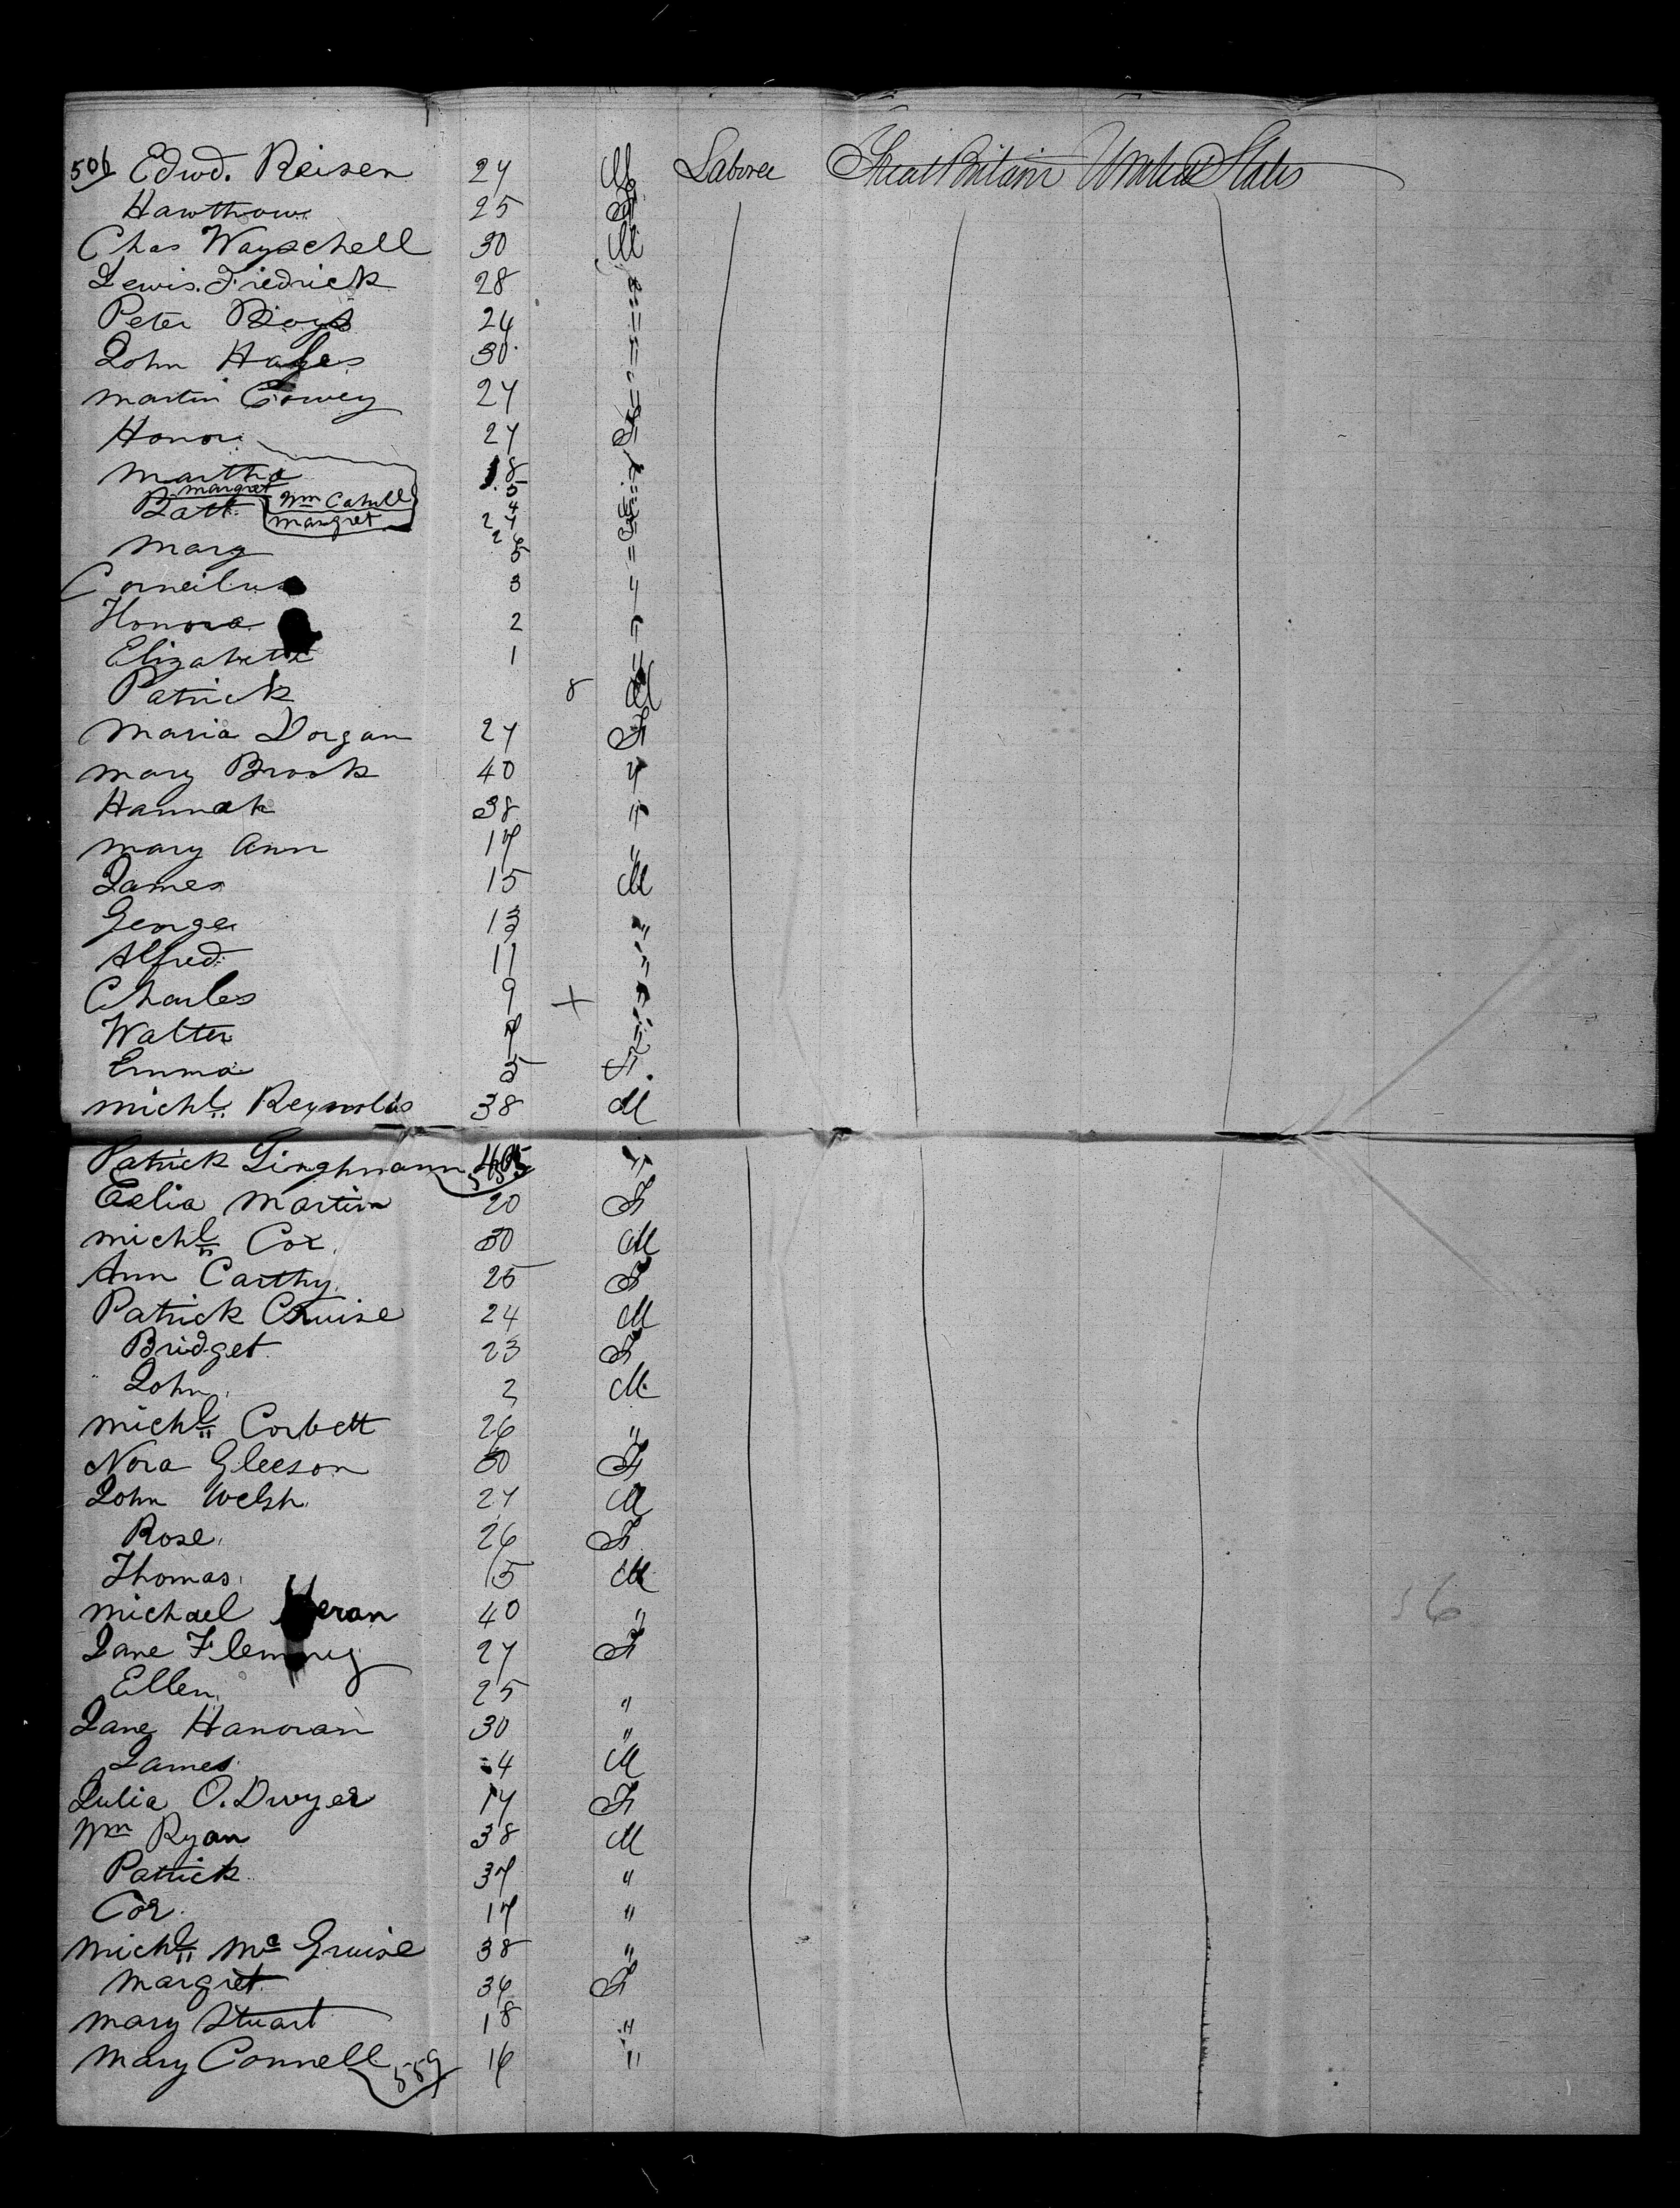 506 Edwd. Reisen 24 M Laborer Great Britain United States
Hawthow 25 F
Chas Wayschell 30 M
Lewis. Fredrick 28 "
Peter 24 "
John Hayes 30 "
Martin 24 "
Honor 24 F
Martha 18 "
Margret 5 "
Batt. Wm Cahill 4
Margret 24
Mary 5 "
Corneilus 3 "
Honora 2 "
Elizabeth 1 "
Patrick 8 M
Maria Dorgan 24 F
Mary Brook 40 "
Hannah 38 "
Mary Ann 17 "
James 15 M
George 13 "
Alfred 11 "
Charles 9 + "
Walter 7 "
Emma 5 F.
Michl. Reynolds 38 M
Patrick Linghmann "
Celia Martin 20 F
Michl Cox 30 M
Ann Carthy 25 F
Patrick Cruise 24 M
Bridget 23 F
John 2 M
Michl Corbett 26 "
Nora Gleeson 30 F
John Welsh 27 M
Rose 26 F
Thomas 15 M
Michael 40 "
Jane Fleming 27 F
Ellen 25 "
Jane Hanoran 30 "
James 4 M
Julia O. Dwyer 17 F
Wm Ryan 38 M
Patrick 37 "
Cor. 17 "
Michl Mc Gruise 38 "
Margret 36 F
Mary Stuart 18 "
Mary Connell 559 16 "
56